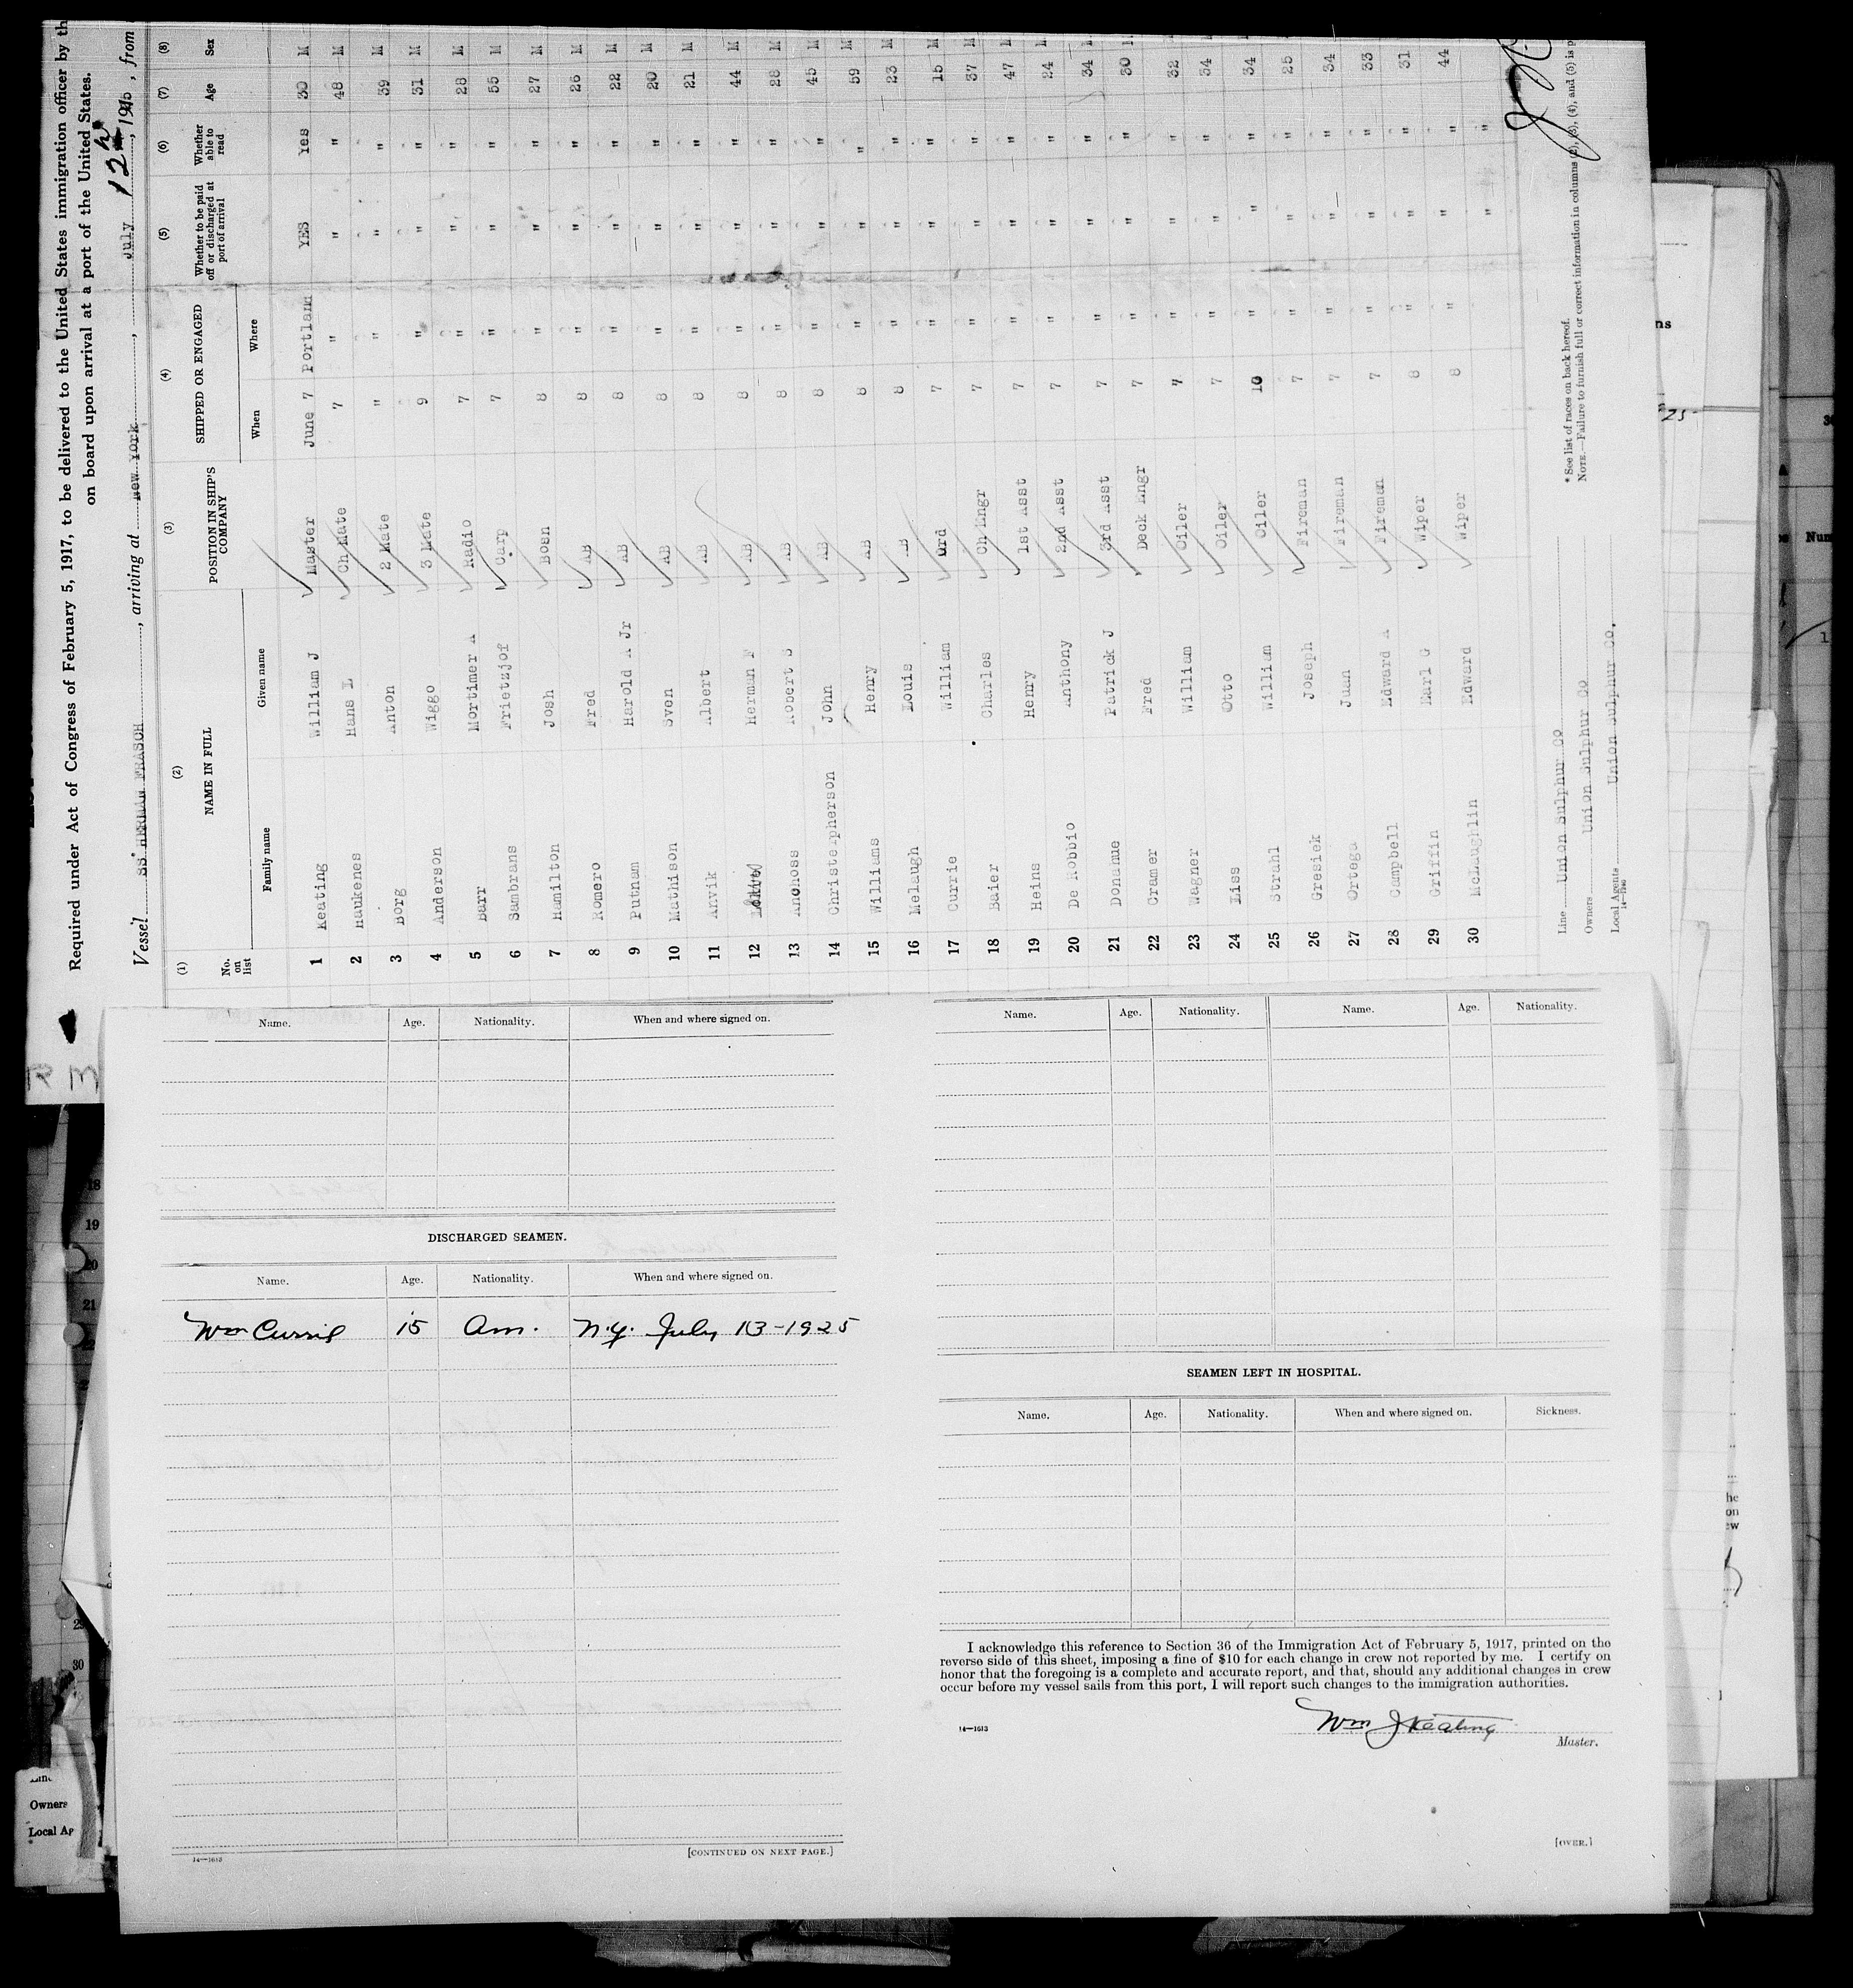 Required under Act of Congress of February 5, 1917, to be delivered to the United States immigration officer by th
on board upon arrival at a port of the United States.
Vessel SS HERMAN FRASCH, arriving at New York, July 12, 1925, from
(1) (2) (3) (4) (5) (6) (7) (8)
No. on list NAME IN FULL POSITION IN SHIP'S COMPANY SHIPPED OR ENGAGED Whether to be paid off or discharged at port of arrival Whether able to read Age Sex
Family name Given name When Where
1 Keating William J Master June 7 Portlan YES Yes 30 M
2 Haukenes Hans L Ch Mate 7 " " " 48 M
3 Borg Anton 2 Mate " " " " 39 M
4 Anderson Wiggo 3 Mate 9 " " " 31 M
5 Barr Mortimer A Radio 7 " " " 28 M
6 Sambrans Frietzjof Carp 7 " " " 55 M
7 Hamilton Josh Bosn 8 " " " 27 M
8 Romero Fred AB 8 " " " 26 M
9 Putnam Harold A Jr AB 8 " " " 22 M
10 Mathison Sven AB 8 " " " 20 M
11 Anvik Albert AB 8 " " " 21 M
12 Herman F AB 8 " " " 44 M
13 Anohoss Robert S AB 8 " " " 28 M
14 Christerpherson John AB 8 " " " 45 M
15 Williams Henry AB 8 " " " 59 M
16 Melaugh Louis AB 8 " " " 23 M
17 Currie William Ord 7 " " " 15 M
18 Baier Charles Ch Engr 7 " " " 37 M
19 Heins Henry 1st Asst 7 " " " 47 M
20 De Robbio Anthony 2nd Asst 7 " " " 24 M
21 Donahue Patrick J 3rd Asst 7 " " " 34 M
22 Cramer Fred Deck Engr 7 " " " 30 M
23 Wagner William Oiler 7 " " " 32
24 Liss Otto Oiler 7 " " " 34
25 Strahl William Oiler 10 " " " 34
26 Gresiek Joseph Fireman 7 " " " 25
27 Ortega Juan Fireman 7 " " " 34
28 Campbell Edward A Fireman 7 " " " 33
29 Griffin Earl G Wiper 8 " " " 31
30 McLaughlin Edward Wiper 8 " " " 44
Line Union Sulphur Co
Owners Union Sulphur Co
Local Agents Union Sulphur Co.
* See list of races on back hereof.
NOTE.—Failure to furnish full or correct information in columns (2), (3), (4), and (5) is p
R M
Name. Age. Nationality. When and where signed on.
DISCHARGED SEAMEN.
Name. Age. Nationality. When and where signed on.
Wm Currie 15 Am. N.Y. July 13-1925
14—1613
[CONTINUED ON NEXT PAGE.]
Name. Age. Nationality. Name. Age. Nationality.
SEAMEN LEFT IN HOSPITAL.
Name. Age. Nationality. When and where signed on. Sickness.
I acknowledge this reference to Section 36 of the Immigration Act of February 5, 1917, printed on the
reverse side of this sheet, imposing a fine of $10 for each change in crew not reported by me. I certify on
honor that the foregoing is a complete and accurate report, and that, should any additional changes in crew
occur before my vessel sails from this port, I will report such changes to the immigration authorities.
14—1613
Wm J Keating
Master.
[OVER.]
18
19
20
21
30
Owners
Local Ag
ns
25
Num
he
on
ew